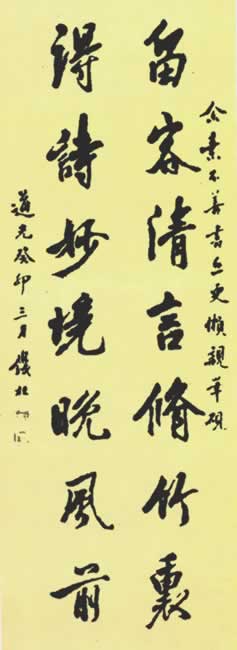 余素不善書近更懶親筆硯
留客清言脩竹裏
得詩妙境晚風前
道光癸卯三月儀